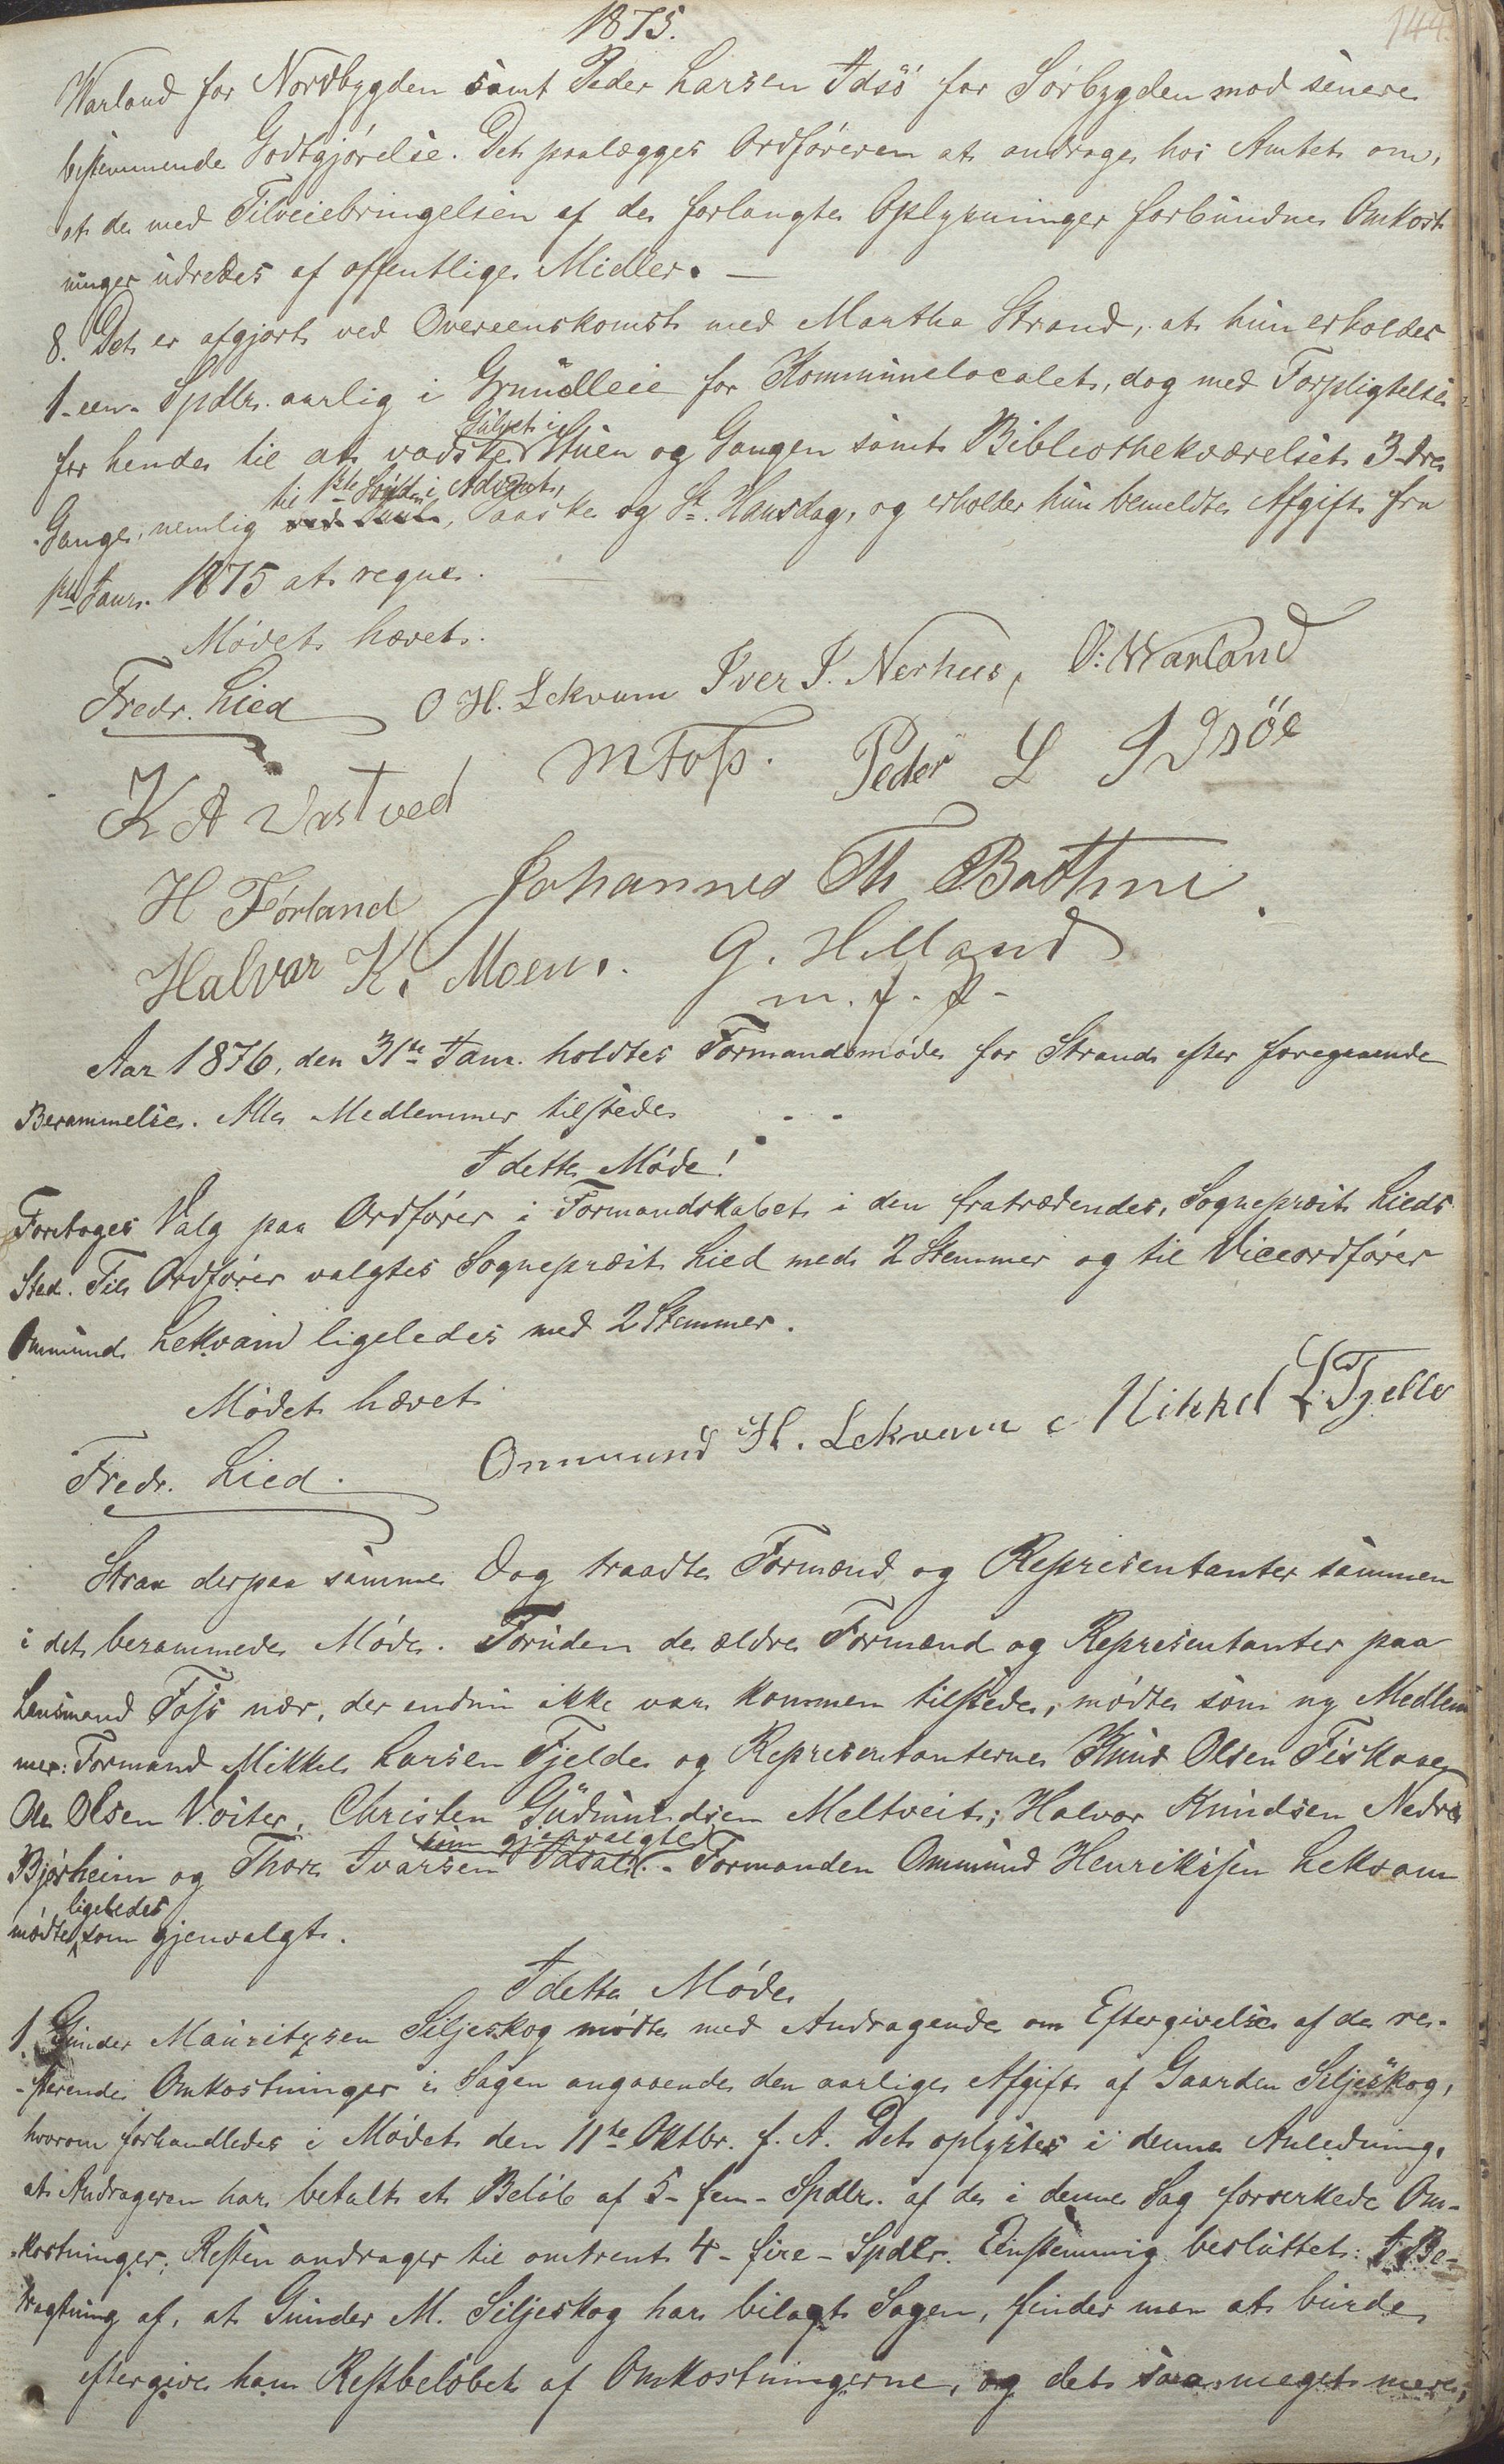 1875.
144.
Warland for Nordbygden samt Peder Larsen Idsö for Sörbygden mod senere
bestemmende Godtgjörelse. Det paalægges Ordföreren at andrage hos Amtet om,
at de med Tilveiebringelsen af de forlangte Oplysninger forbundne Omkost
ninger udredes af offentlige Midler. —
8. Det er afgjort ved Overeenskomst med Martha Strand, at hun erholder
1 - een - Spdlr. aarlig i Grundleie for Kommunelocalet, dog med Forpligtelse
Gulvet i
for hende til at vadske Stuen og Gangen samt Bibliothekværelset 3 dre
til 1ste Sönd. i Advent,
Gange, nemlig ved Juul, Paaske og St. Hansdag, og erholder hun bemeldte Afgift fra
1ste Janr. 1875 at regne.
Mödet hævet.
Fredr. Lied O H. Lekvam Iver I. Nerhus, O: Warland
K A Vastved M Foss. Peder L Idsöe
H Förland Johannes Th Botne
Halvar K. Moen. G. Helland
m. f. P.
Aar 1876, den 31te Janr. holdtes Formandsmöde for Strand efter foregaaende
Berammelse. Alle Medlemmer tilstede
I dette Möde!
Foretoges Valg paa Ordförer i Formandskabet i den fratrædendes, Sogneprest Lieds
Sted. Til Ordförer valgtes Sogneprest Lied med 2 Stemmer og til Viceordförer
Ommund Lekvam ligeledes med 2 Stemmer.
Mödet hævet
Fredr. Lied. Ommund H. Lekvam Mikkel L. Fjelde
Strax derpaa samme Dag traadte Formænd og Representanter sammen
i det berammede Möde. Foruden de ældre Formænd og Representanter paa
Lensmand Foss nær, der endnu ikke var kommen tilstede, mödte som ny Medlem
mer: Formand Mikkel Larsen Fjelde og Representanterne Knud Olsen Fiskaae
Ole Olsen Voster, Christen Gudmundsen Meltveit; Halvor Knudsen Nedre
som gjenvalgte
Bjørheim og Thore Ivarsen Idsal. - Formanden Ommund Henriksen Lekvam
ligeledes
mödte som gjenvalgt.
I dette Möde
1. Gunder Mauritzsen Siljeskog mödte med Andragende om Eftergivelse af de re-
-sterende Omkostninger i Sagen angaaende den aarlige Afgift af Gaarden Siljeskog,
hvorom forhandledes i Mödet den 11te Oktbr. f. A. Det oplystes i denne Anledning,
at Andrageren har betalt et Belöb af 5 - fem - Spdlr. af de i denne Sag forverkede Om-
kostninger; Resten andrager til omtrent 4 - fire - Spdlr. Eenstemmig besluttet: I Be-
tragtning af, at Gunder M. Siljeskog har bilagt Sagen, finder man at burde
eftergive ham Restbelöbet af Omkostningerne, og det saa meget mere,